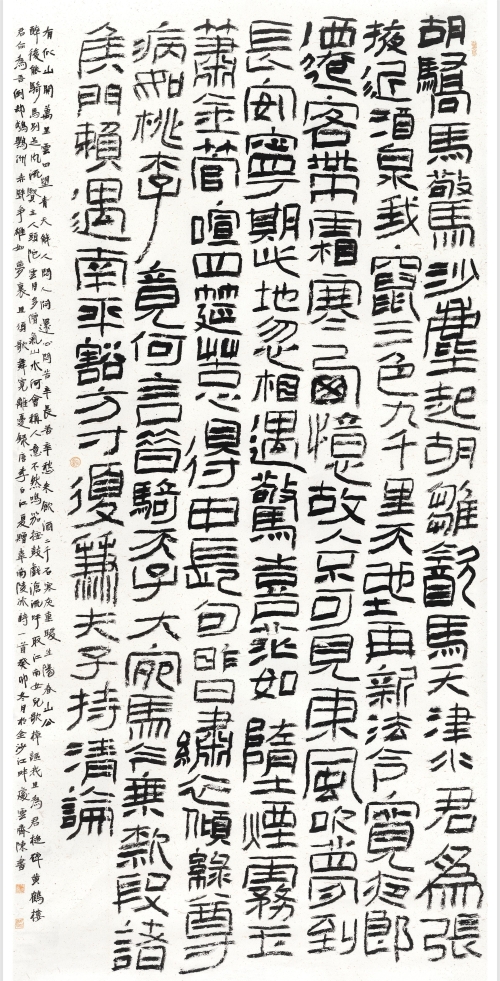 胡驕馬驚沙塵起胡雛飲馬天津水君為張
掖近酒泉我竄三巴九千里天地再新法令寬夜郎
遷客帶霜寒西憶故人不可見東風吹夢到
長安寧期此地忽相遇驚喜茫如墮煙霧玉
簫金管喧四筵苦心不得申長句昨日繡衣傾綠尊
病如桃李竟何言昔騎天子大宛馬今乘款段諸
侯門賴遇南平豁方寸復兼夫子持清論
有似山開萬里雲四望青天解人悶人悶還心悶苦辛長苦辛愁來飲酒二千石寒灰重暖生陽春山公
醉後能騎馬別是風流賢主人頭陀雲月多僧氣山水何曾稱人意不然鳴笳按鼓戲滄流呼取江南女兒歌棹謳我且為君捶碎黃鶴樓
君亦為吾倒却鸚鵡洲赤壁爭雄如夢裏且須歌舞寬離憂錄唐李白江夏贈韋南陵冰詩一首癸卯冬月於金沙江畔雲齋陳書